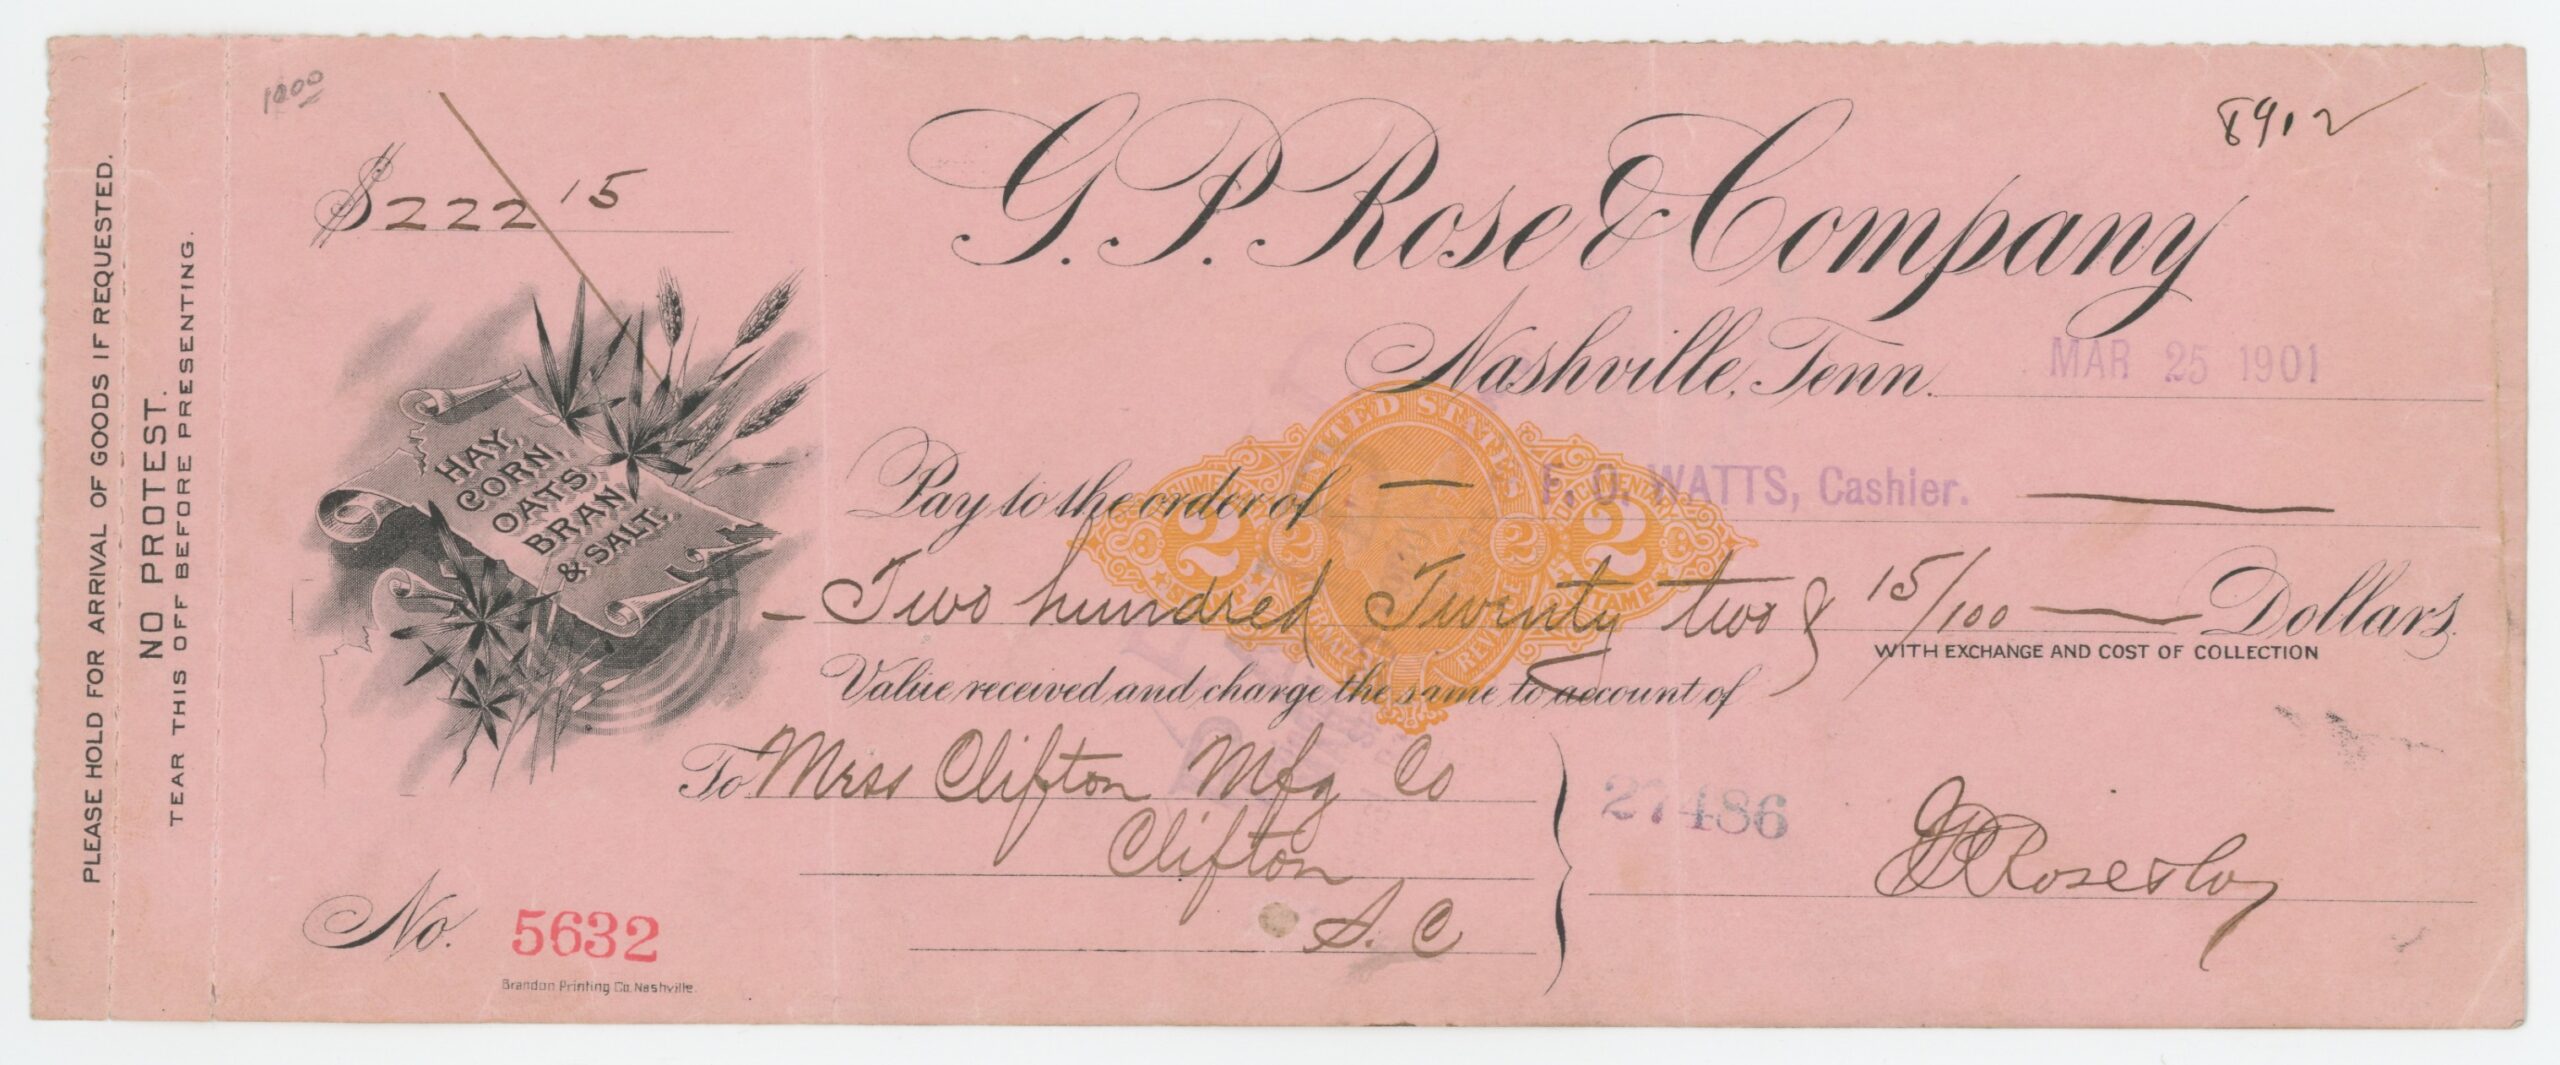 PLEASE HOLD FOR ARRIVAL OF GOODS IF REQUESTED.
NO PROTEST.
TEAR THIS OFF BEFORE PRESENTING.
8912
$222 15
G. P. Rose & Company
Nashville, Tenn. MAR 25 1901
HAY,
CORN,
OATS,
BRAN
& SALT.
UNITED STATES
INTERNAL REVENUE
DOCUMENTARY
STAMP
2 2 2 2
Pay to the order of — F. O. WATTS, Cashier. —
— Two hundred Twenty two & 15/100 — Dollars
WITH EXCHANGE AND COST OF COLLECTION
Value received and charge the same to account of
To Mess Clifton Mfg Co
Clifton
S. C
27486
G P Rose & Co
No. 5632
Brandon Printing Co. Nashville.